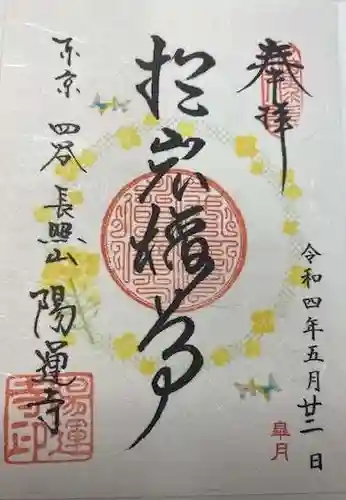 奉拝
令和四年五月廿二日
皐月
於岩稲荷
東京四谷長照山陽運寺
陽運寺印